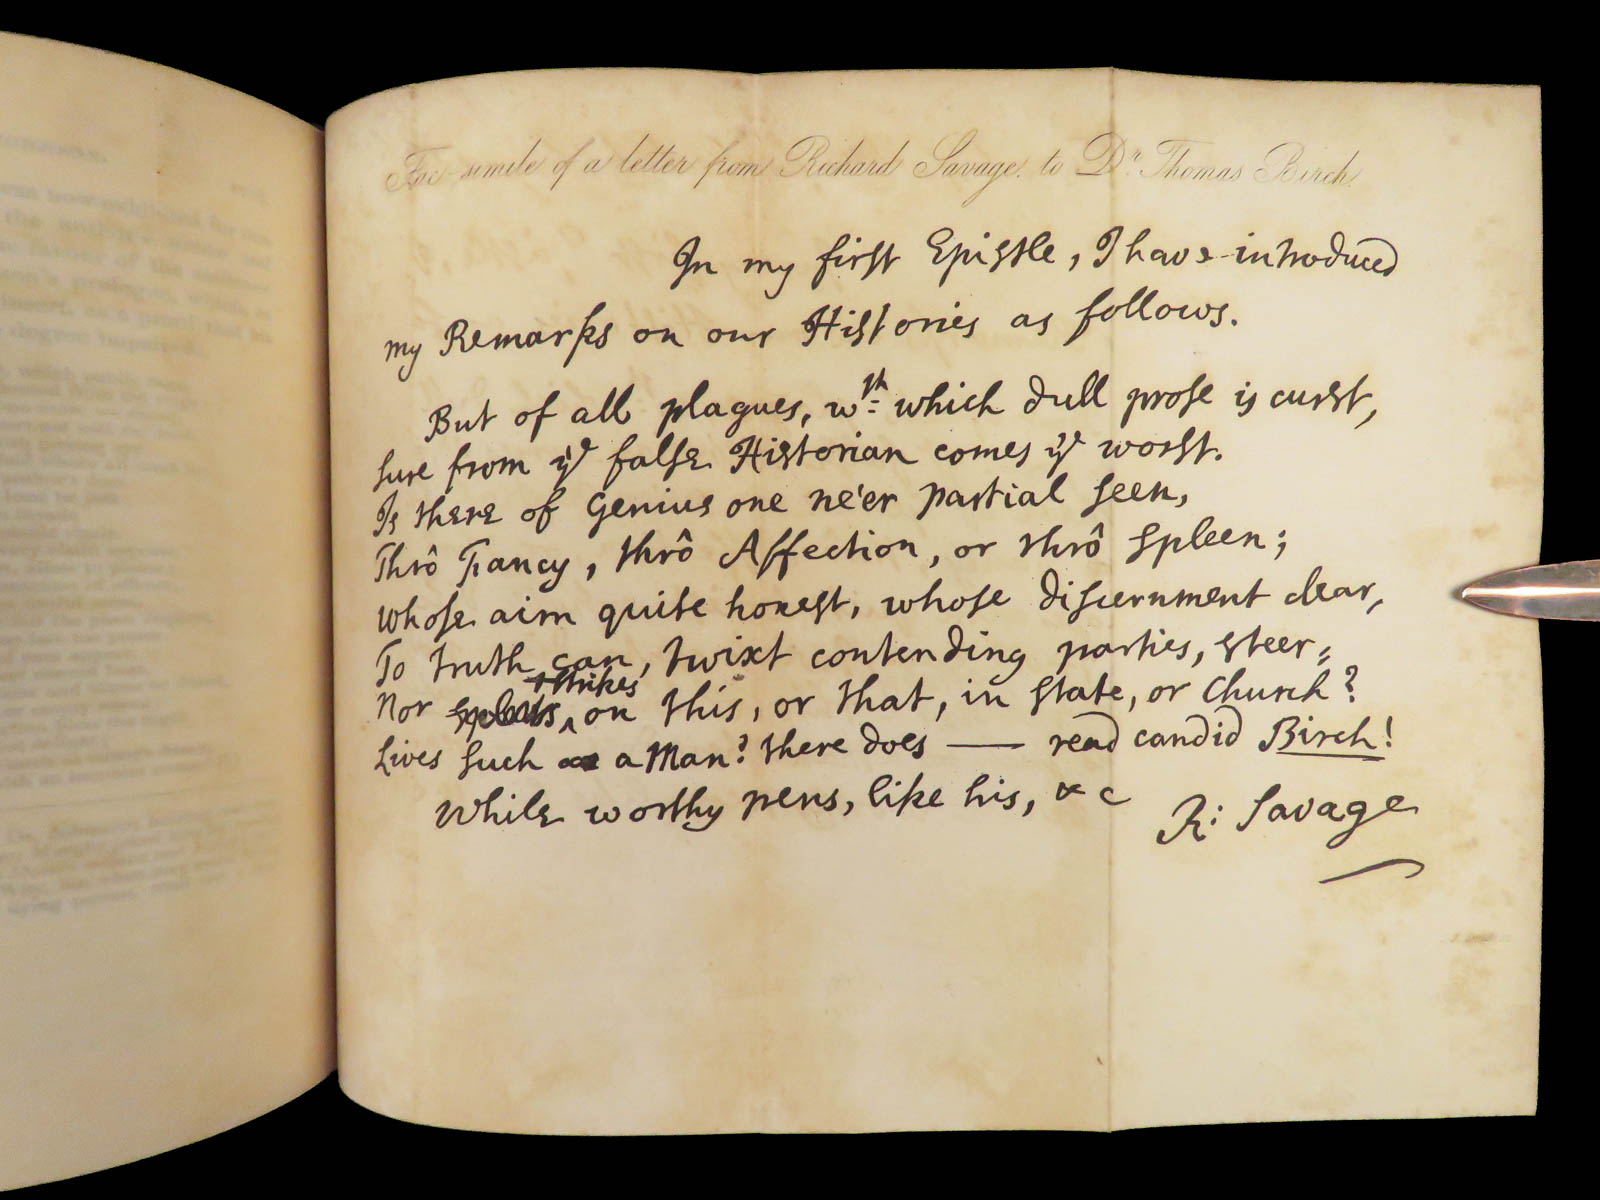 Fac-simile of a letter from Richard Savage to Dr. Thomas Birch.
In my first Epistle, I have introduced
my Remarks on our Histories as follows.
But of all plagues, wth. which dull prose is curst,
sure from ye false Historian comes ye worst.
Is there of Genius one ne'er partial seen,
Thrô Fancy, thrô Affection, or thrô Spleen;
whose aim quite honest, whose discernment clear,
To truth can, twixt contending parties, steer;
strikes
Nor ^ on this, or that, in state, or Church?
Lives such a Man? there does — read candid Birch!
While worthy pens, like his, &c
R: Savage